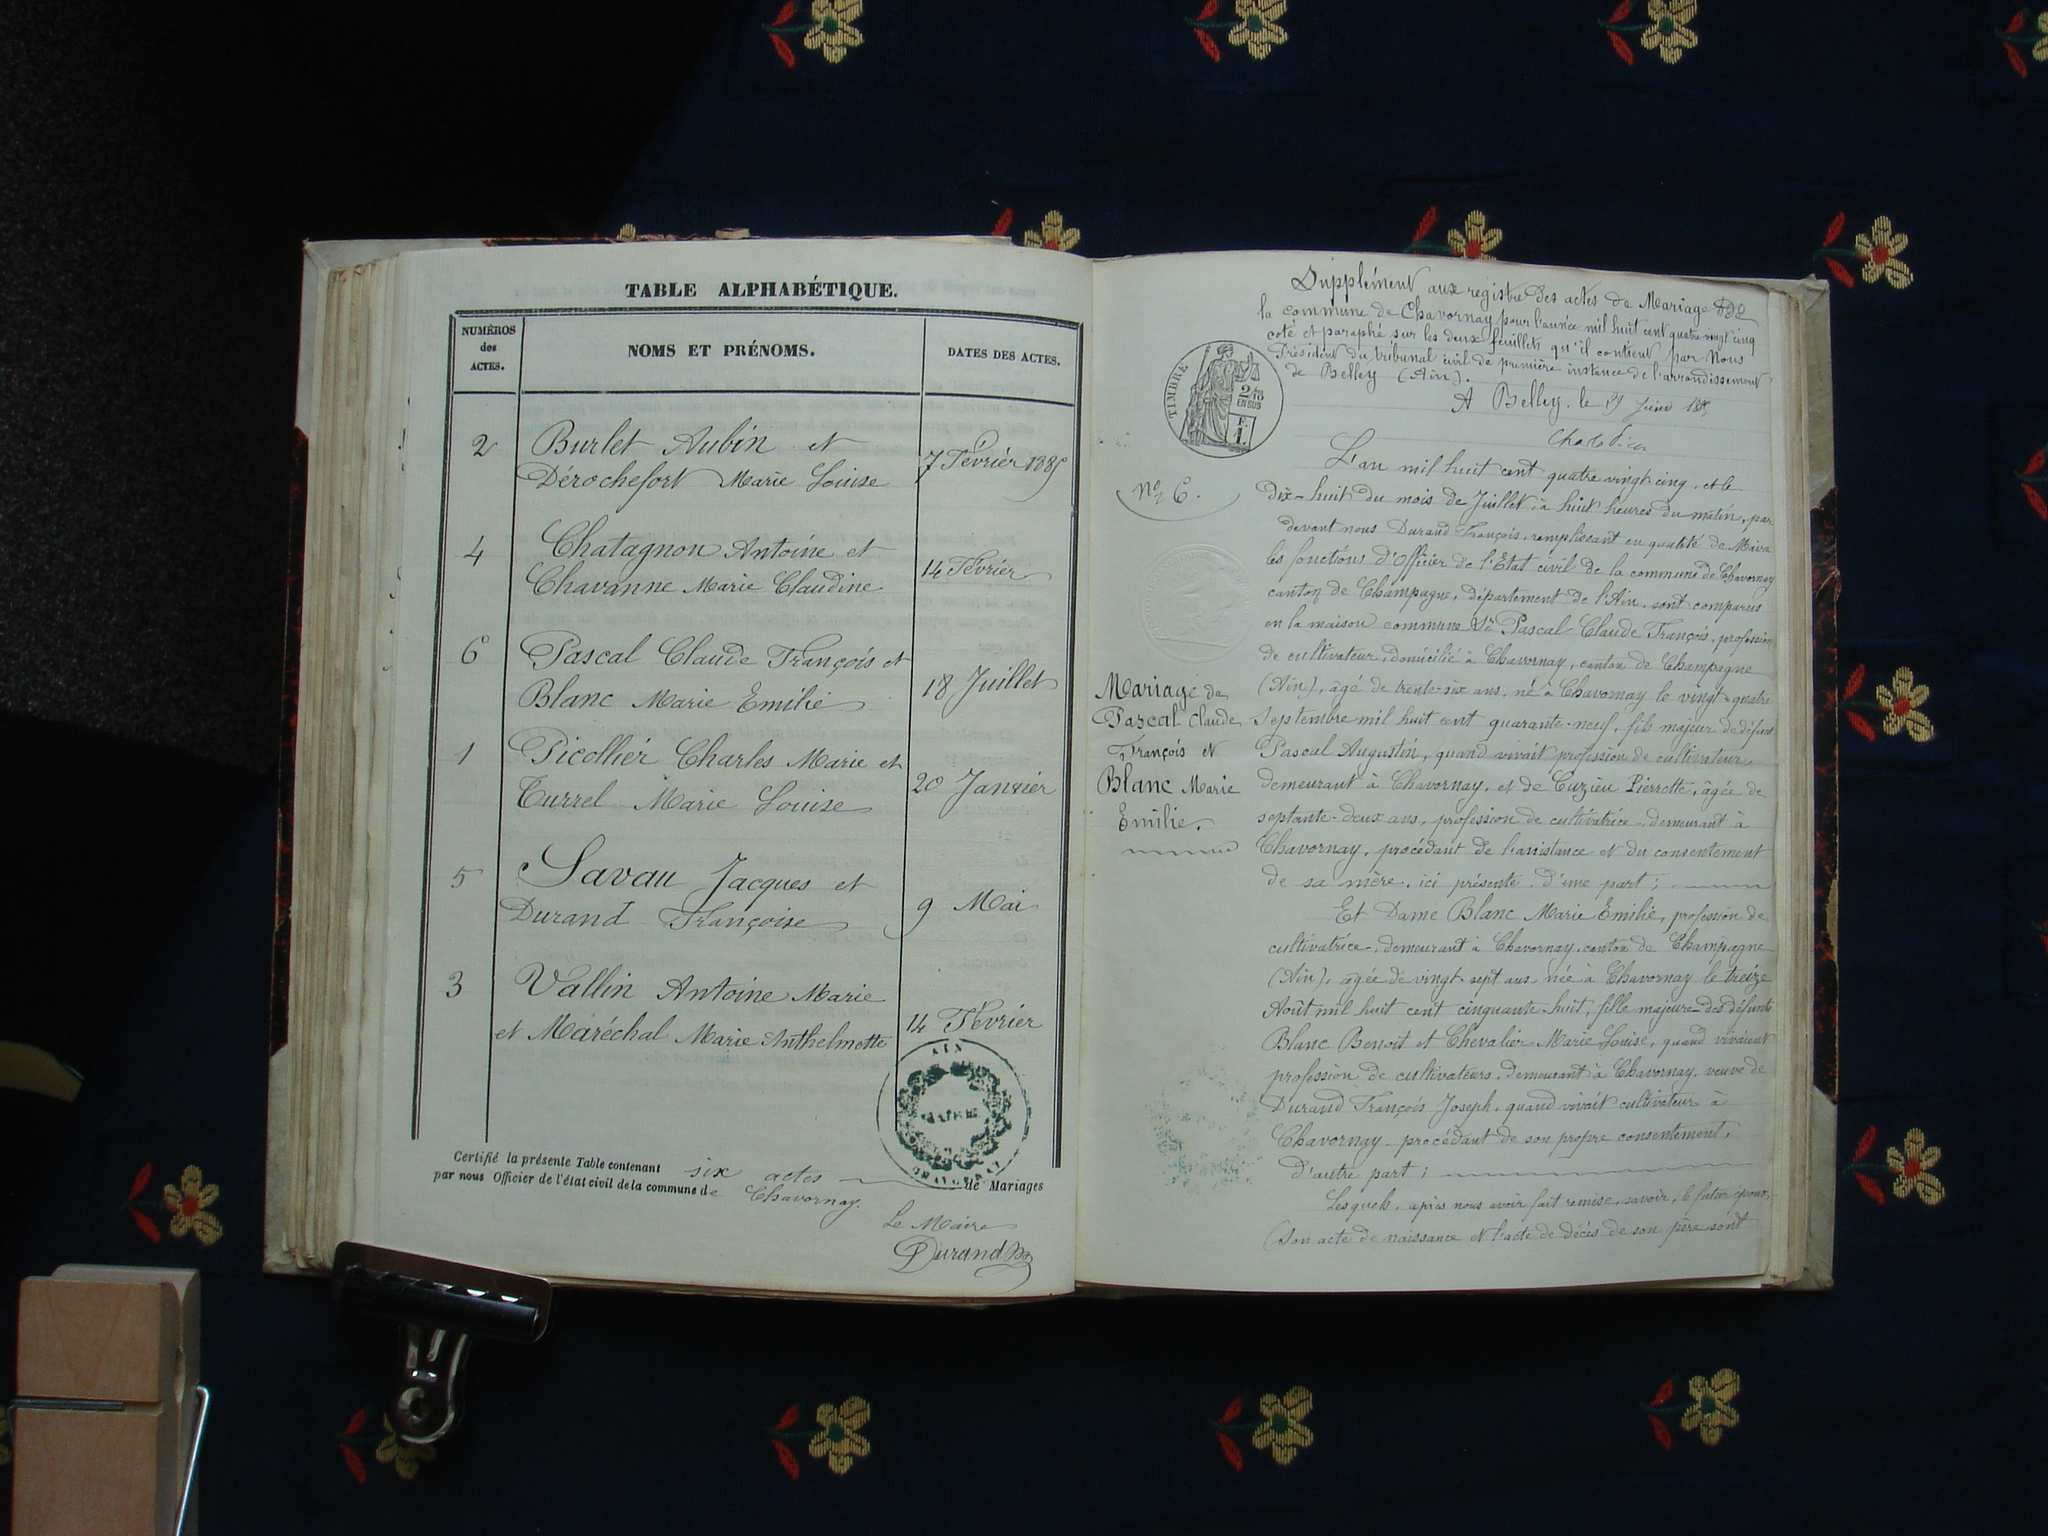 TABLE ALPHABÉTIQUE.
NUMÉROS
des
ACTES.
NOMS ET PRÉNOMS.
DATES DES ACTES.
2
Burlet Aubin et
Dérochefort Marie Louise
7 Février 1885
4
Chatagnon Antoine et
Chavanne Marie Claudine
14 Février
6
Pascal Claude François et
Blanc Marie Emilie
18 Juillet
1
Picollier Charles Marie et
Turrel Marie Louise
20 Janvier
5
Savau Jacques et
Durand Françoise
9 Mai
3
Vallin Antoine Marie
et Maréchal Marie Anthelmette
14 Février
AIN
MAIRIE
Certifié la présente Table contenant six actes de Mariages
par nous Officier de l'état civil de la commune de Chavornay.
Le Maire
Durand
Supplément aux registre des actes de Mariage de
la commune de Chavornay pour l'année mil huit cent quatre vingt cinq
coté et paraphé sur les deux feuillets qu'il contient par Nous
Président du tribunal civil de première instance de l'arrondissement
de Belley (Ain).
A Belley, le
TIMBRE
2/10
EN SUS
F.
1.
No 6.
L'an mil huit cent quatre vingt cinq, et le
dix-huit du mois de Juillet, à huit heures du matin, par
devant nous Durand François, remplissant en qualité de Maire
les fonctions d'Officier de l'Etat civil de la commune de Chavornay
canton de Champagne, département de l'Ain, sont comparus
en la maison commune Sr Pascal Claude François, profession
de cultivateur, domicilié à Chavornay, canton de Champagne
(Ain), âgé de trente-six ans, né à Chavornay le vingt-quatre
Septembre mil huit cent quarante-neuf, fils majeur de défunt
Pascal Augustin, quand vivait profession de cultivateur,
demeurant à Chavornay, et de Cuzieu Pierrette, âgée de
septante-deux ans, profession de cultivatrice, demeurant à
Chavornay, procédant de l'assistance et du consentement
de sa mère, ici présente, d'une part;
Mariage de
Pascal Claude
François et
Blanc Marie
Emilie.
Et Dame Blanc Marie Emilie, profession de
cultivatrice, demeurant à Chavornay, canton de Champagne
(Ain), âgée de vingt-sept ans, née à Chavornay le treize
Août mil huit cent cinquante-huit, fille majeure des défunts
Blanc Benoit et Chevalier Marie Louise, quand vivaient
profession de cultivateurs, demeurant à Chavornay, veuve de
Durand François Joseph, quand vivait cultivateur à
Chavornay, procédant de son propre consentement,
d'autre part;
Lesquels, après nous avoir fait remise, savoir, le futur époux,
Son acte de naissance et l'acte de décès de son père sont